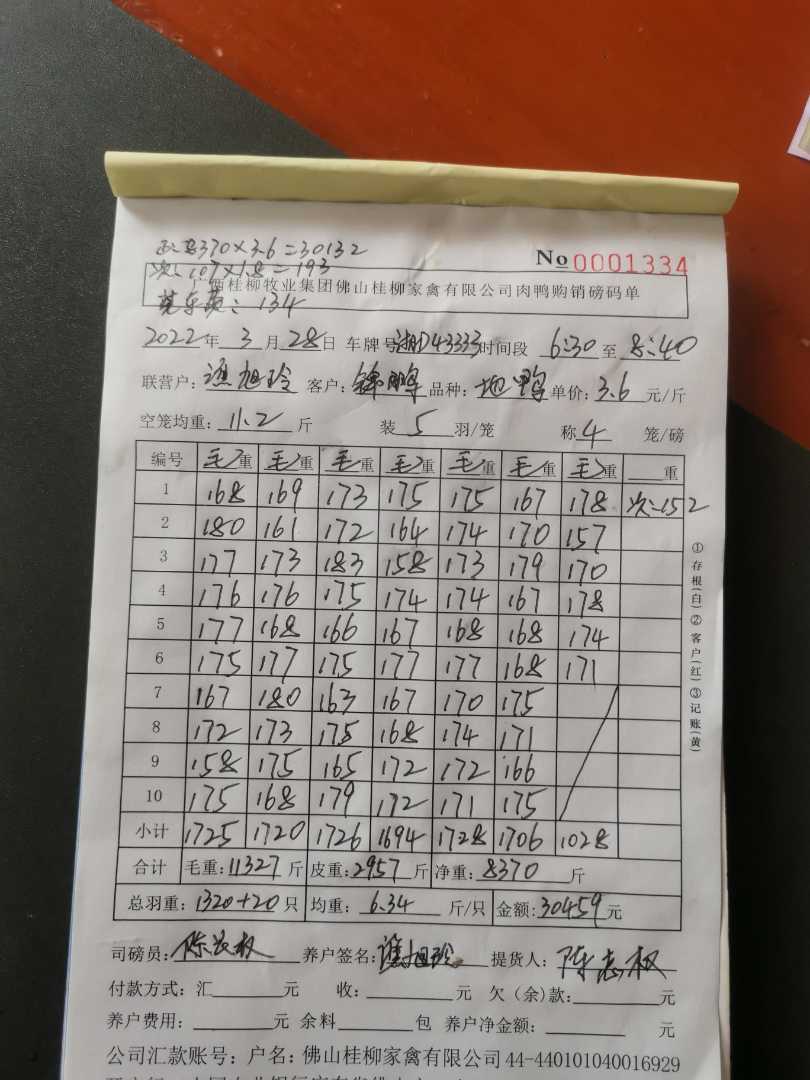 正品8370×3.6=30132
No 0001334
次:107×1.8=193
广西桂柳牧业集团佛山桂柳家禽有限公司肉鸭购销磅码单
134
2022年 3月28日 车牌号湘D43333时间段 6:30 至 8:40
联营户: 谯旭玲 客户: 锦鹏 品种: 地鸭 单价: 3.6 元/斤
空笼均重: 11.2 斤 装 5 羽/笼 称 4 笼/磅
编号 毛重 毛重 毛重 毛重 毛重 毛重 毛重 重
1 168 169 173 175 175 167 178 次:152
2 180 161 172 164 174 170 157
3 177 173 183 158 173 179 170
4 176 176 175 174 174 167 178
5 177 168 166 167 168 168 174
6 175 177 175 177 177 168 171
7 167 180 163 167 170 175
8 172 173 175 168 174 171
9 158 175 165 172 172 166
10 175 168 179 172 171 175
小计 1725 1720 1726 1694 1728 1706 1028
合计 毛重: 11327 斤 皮重: 2957 斤 净重: 8370 斤
总羽重: 1320+20 只 均重: 6.34 斤/只 金额: 30459 元
司磅员: 陈志权 养户签名: 谯旭玲 提货人: 陈志权
付款方式: 汇 元 收: 元 欠(余)款: 元
养户费用: 元 余料 包 养户净金额: 元
公司汇款账号: 户名: 佛山桂柳家禽有限公司 44-440101040016929
①存根(白)②客户(红)③记账(黄)